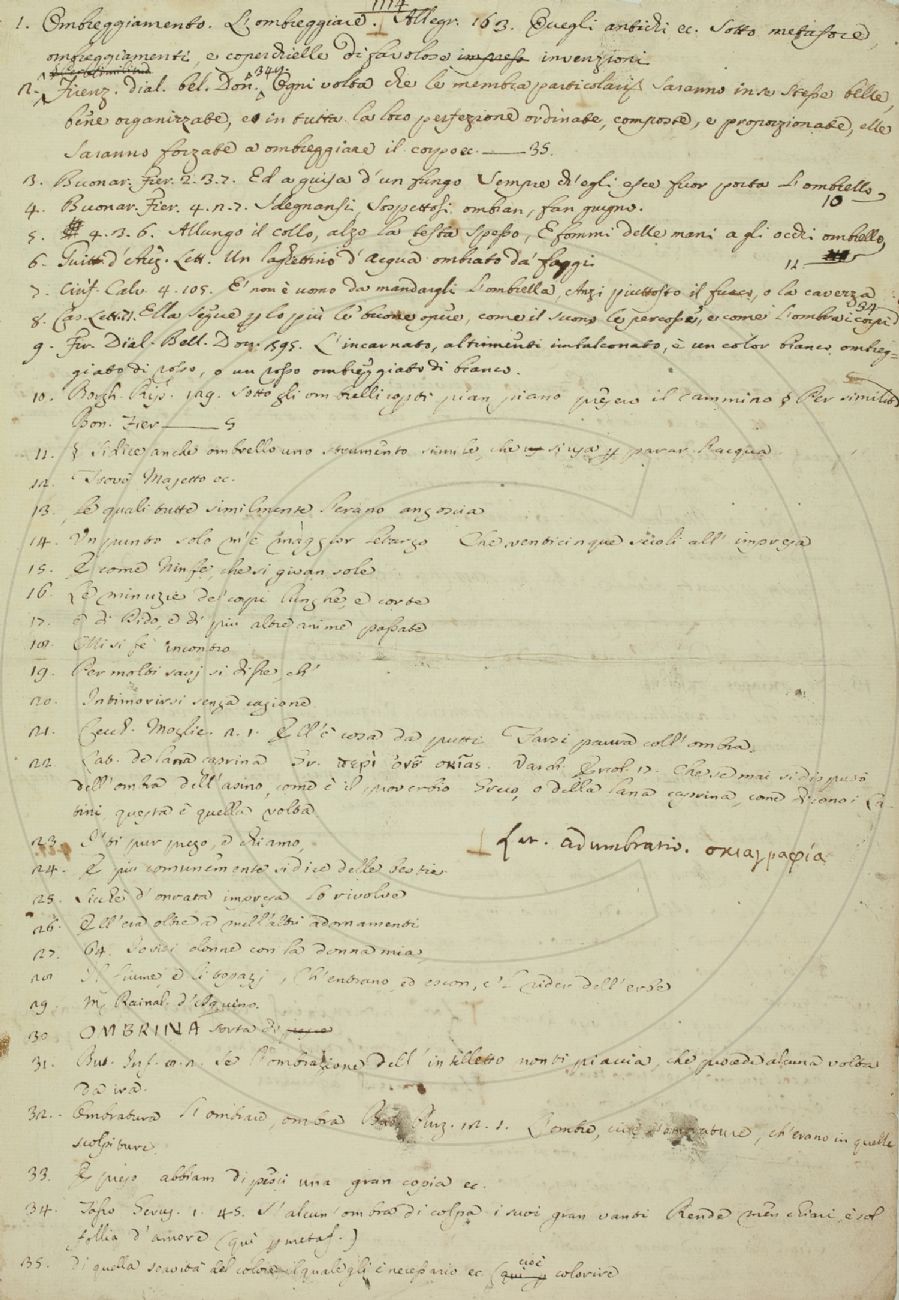 1114
1. Ombreggiamento. L'ombreggiare. Allegr. 163. Quegli antichi ec. sotto metafore,
ombreggiamenti, e coperchielle di favolose impresse invenzioni
2. Firenz. dial. bel. Don. 344. Ogni volta che le membra particolari saranno in se stesse belle,
bene organizzate, e in tutta la loro perfezione ordinate, composte, e proporzionate, elle
saranno forzate a ombreggiare il corpo ec. 35.
3. Buonar. Fier. 2. 3. 7. Ed a guisa d'un fungo Sempre ch'egli esce fuor porta L'ombrello
10
4. Buonar. Fier. 4. 2. 7. Sdegnansi, sospettosi ombran, fan pugno.
5. 4. 3. 6. Allungo il collo, alzo la testa spesso, E fommi delle mani a gli occhi ombrello,
12
6. Guitt. d'Arez. Lett. Un laghettino d'acqua ombrato da' faggi
7. Ciriff. Calv. 4. 105. E' non è uomo da mandargli L'ombrella, Anzi piuttosto il fuoco, o la cavezza
34
8. Cas. Lett. 71. Ella segue p lo più le buone opere, come il suono le percosse, e come l'ombra i corpi
9. Fir. Dial. Bell. Don. 395. L'incarnato, altrimenti imbalconato, è un color bianco ombreg-
giato di rosso, o un rosso ombreggiato di bianco.
10. Borgh. Rip. 129. Sotto gli ombrelli coperti pian piano presero il cammino § Per similit.
Bon. Fier 5
11. § Si dice anche ombrello uno strumento simile, che si usa p parar l'acqua
12. Trovò Masetto ec.
13. Le quali tutte similmente l'erano angoscia
14. Un punto solo m'è maggior letargo Che venticinque secoli all'impresa
15. E come Ninfe, che si givan sole
16. Le minuzie de' corpi lunghe, e corte
17. e di Dido, e di più altre anime passate
18. Elli si fè incontro
19. Per molti savj si disse, ch'
20. Intimorirsi senza cagione
21. Cecch. Moglie. 2. 1. Ell'è cosa da putti Farsi paura coll'ombra.
22. Lat. de lana caprina Gr. περὶ ὄνȣ σκιᾶς. Varch. Ercol. 17. Che se mai si disputò
dell'ombra dell'asino, come è il proverbio Greco, o della lana caprina, come dicono i La-
tini, questa è quella volta
23. I' ti pur prego, e chiamo,
Lat. adumbratio. σκιαγραφία
24. E più comunemente si dice delle bestie
25. Sicchè d'onrata impresa lo rivolve
26. Ell'era oltre a mill'altri adornamenti
27. 64. Sevici donne con la donna mia
28. Il fiume, e li topazj, Ch'entrano, ed escon, e 'l rider dell'erbe
29. M. Rainal. d'Aquino.
30. OMBRINA sorta di pesce
31. But. Inf. Se l'ombrazione dell'intelletto non ti piaccia, che procede alcuna volta
da ira.
32. Ombratura L'ombrare, ombra But. Purg. 12. 1. L'ombre, cioè l'ombrature, ch'erano in quelle
scolpiture
33. E preso abbiam di pesci una gran copia ec.
34. Tasso Gerus. 1. 45. S'alcun'ombra di colpa i suoi gran vanti Rende men chiari, è sol
follia d'amore (qui p metaf.)
35. di quella scurità del colore, il quale gli è necessario ec. (cioè qui p colorire